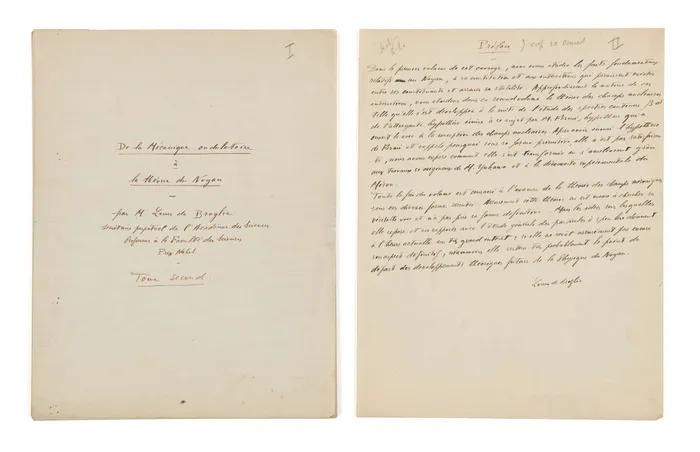 I
De la Mécanique ondulatoire
à
la théorie du Noyau
par M Louis de Broglie
secrétaire perpétuel de l'Académie des Sciences
Professeur à la Faculté des Sciences
Prix Nobel
Tome second
Préface
II
Dans le premier volume de cet ouvrage, nous avons étudié les faits fondamentaux
relatifs au Noyau, à sa constitution et aux interactions qui peuvent exister
entre ses constituants et assurer sa stabilité. Approfondissant la nature de ces
interactions, nous étudions dans ce second volume la théorie des champs nucléaires
telle qu'elle s'est développée à la suite de l'étude des spectres continus β et
de l'attrayante hypothèse émise à ce sujet par M. Fermi, hypothèse qui a
ouvert la voie à la conception des champs nucléaires. Après avoir exposé l'hypothèse
de Fermi et rappelé pourquoi sous sa forme première, elle n'est pas satisfaisante
nous avons exposé comment elle s'est transformée en s'améliorant grâce
aux travaux de M. Yukawa et à la découverte expérimentale du
Méson.
Toute la fin du volume est consacrée à l'examen de la théorie des champs mésoniques
sous ses diverses formes. Assurément cette théorie en est encore à chercher sa
véritable voie et n'a pas pris sa forme définitive. Mais les idées sur lesquelles
elle repose et ses rapports avec l'étude générale des particules à spin lui donnent
à l'heure actuelle un très grand intérêt; si elle ne revêt assurément pas encore
un aspect définitif, néanmoins elle restera très probablement le point de
départ des développements théoriques futurs de la Physique du Noyau.
Louis de Broglie